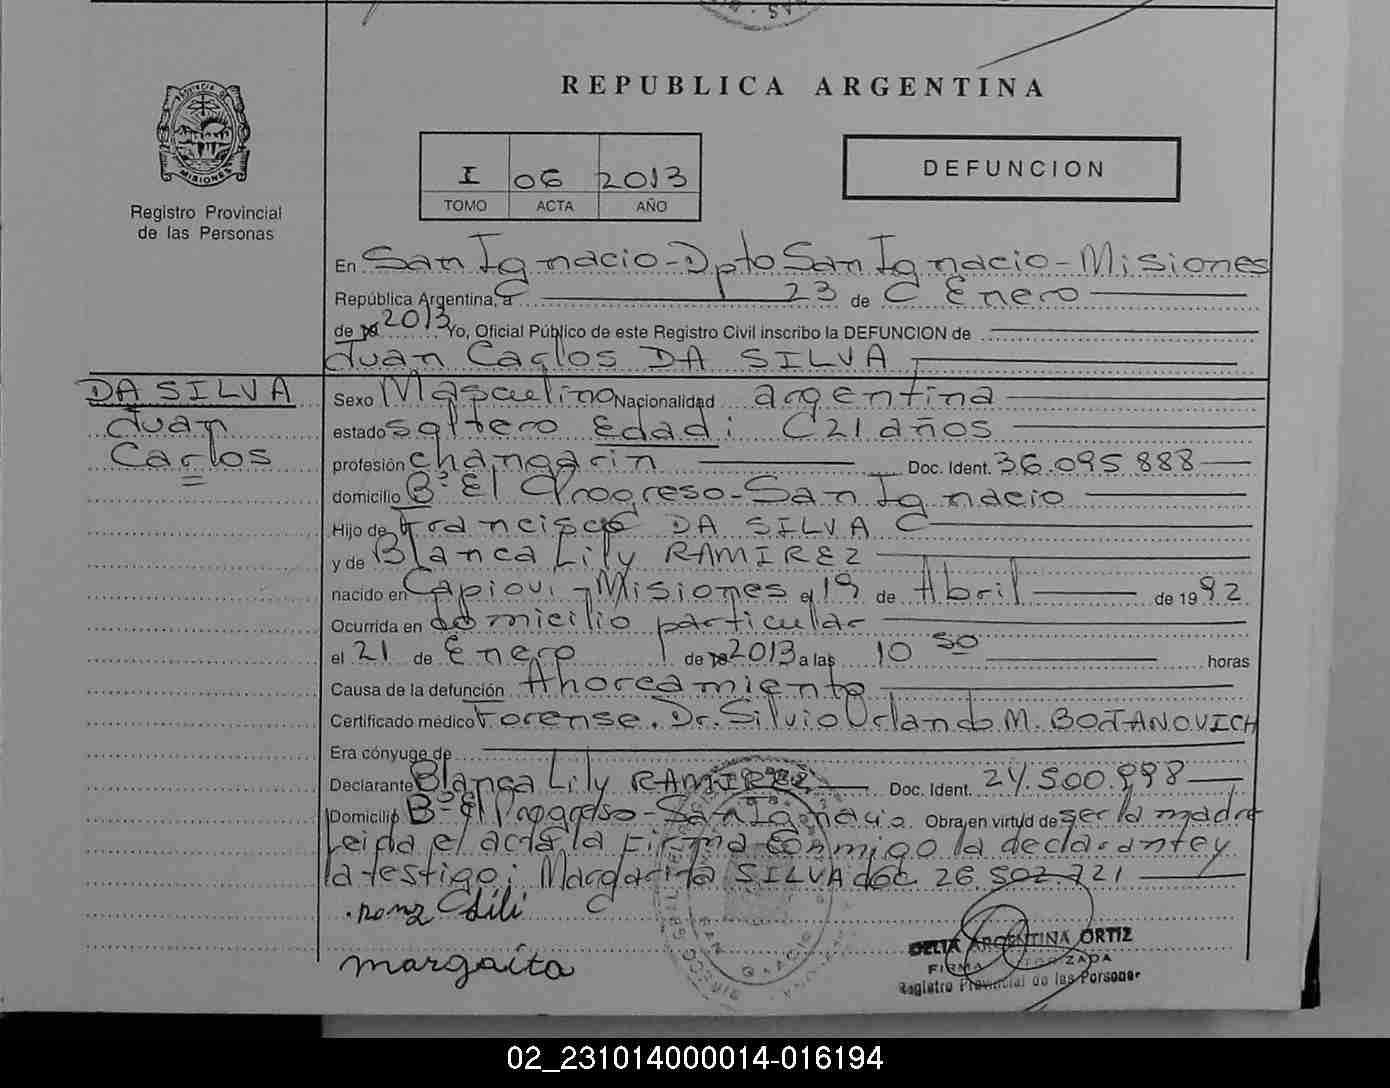 REPUBLICA ARGENTINA
PROVINCIA DE
MISIONES
Registro Provincial
de las Personas
I 06 2013
TOMO ACTA AÑO
DEFUNCION
En San Ignacio-Dpto San Ignacio-Misiones
República Argentina, a 23 de Enero
de 2013 Yo, Oficial Público de este Registro Civil inscribo la DEFUNCION de
Juan Carlos DA SILVA
DA SILVA
Juan
Carlos
Sexo Masculino Nacionalidad argentina
estado soltero Edad: 21 años
profesión changarin Doc. Ident. 36.095.888
domicilio Bº El Progreso-San Ignacio
Hijo de Francisco DA SILVA
y de Blanca Lily RAMIREZ
nacido en Capiovi-Misiones el 19 de Abril de 1992
Ocurrida en domicilio particular
el 21 de Enero de 2013 a las 10 50 horas
Causa de la defunción Ahorcamiento
Certificado médico Forense. Dr. Silvio Orlando M. BOJANOVICH
Era cónyuge de
Declarante Blanca Lily RAMIREZ Doc. Ident. 24.500.998
Domicilio Bº El Progreso-San Ignacio. Obra en virtud de ser la madre
Leida el acta la Firma conmigo la declarante y
la testigo: Margarita SILVA doc. 26.502.721
margaita
DELIA ARGENTINA ORTIZ
FIRMA AUTORIZADA
Registro Provincial de las Personas
02_231014000014-016194